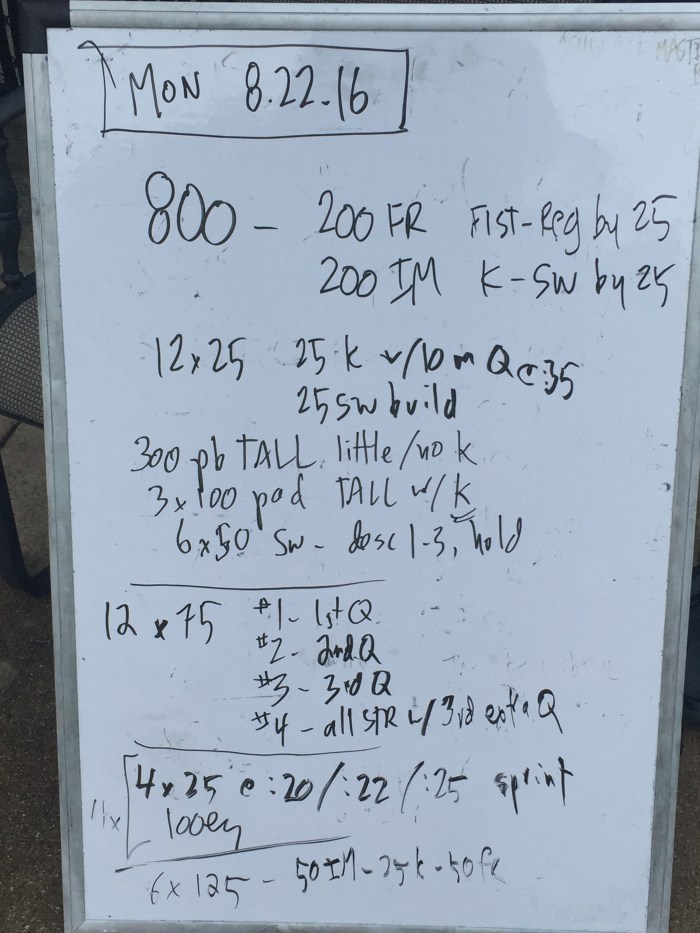 MON 8.22.16
800 - 200 FR Fist-Reg by 25
200 IM K-SW by 25
12x25 25 K w/10m Q @:35
25 sw build
300 pb TALL little/no k
3x100 pad TALL w/K
6x50 sw - desc 1-3, hold
12 x 75 #1- 1st Q
#2- 2nd Q
#3- 3rd Q
#4- all STR w/3rd extra Q
4x25 @ :20/:22/:25 sprint
100ez
6x125 - 50IM-25K-50FR